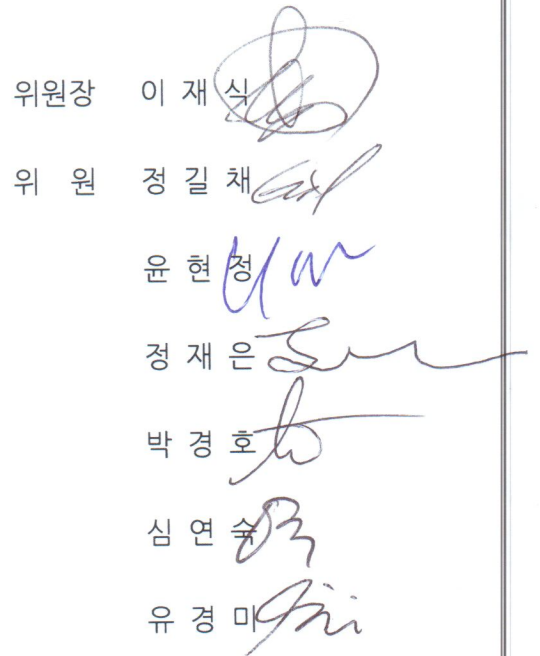 위원장 이 재 식
위 원 정 길 채
윤 현 정
정 재 은
박 경 호
심 연 숙
유 경 미